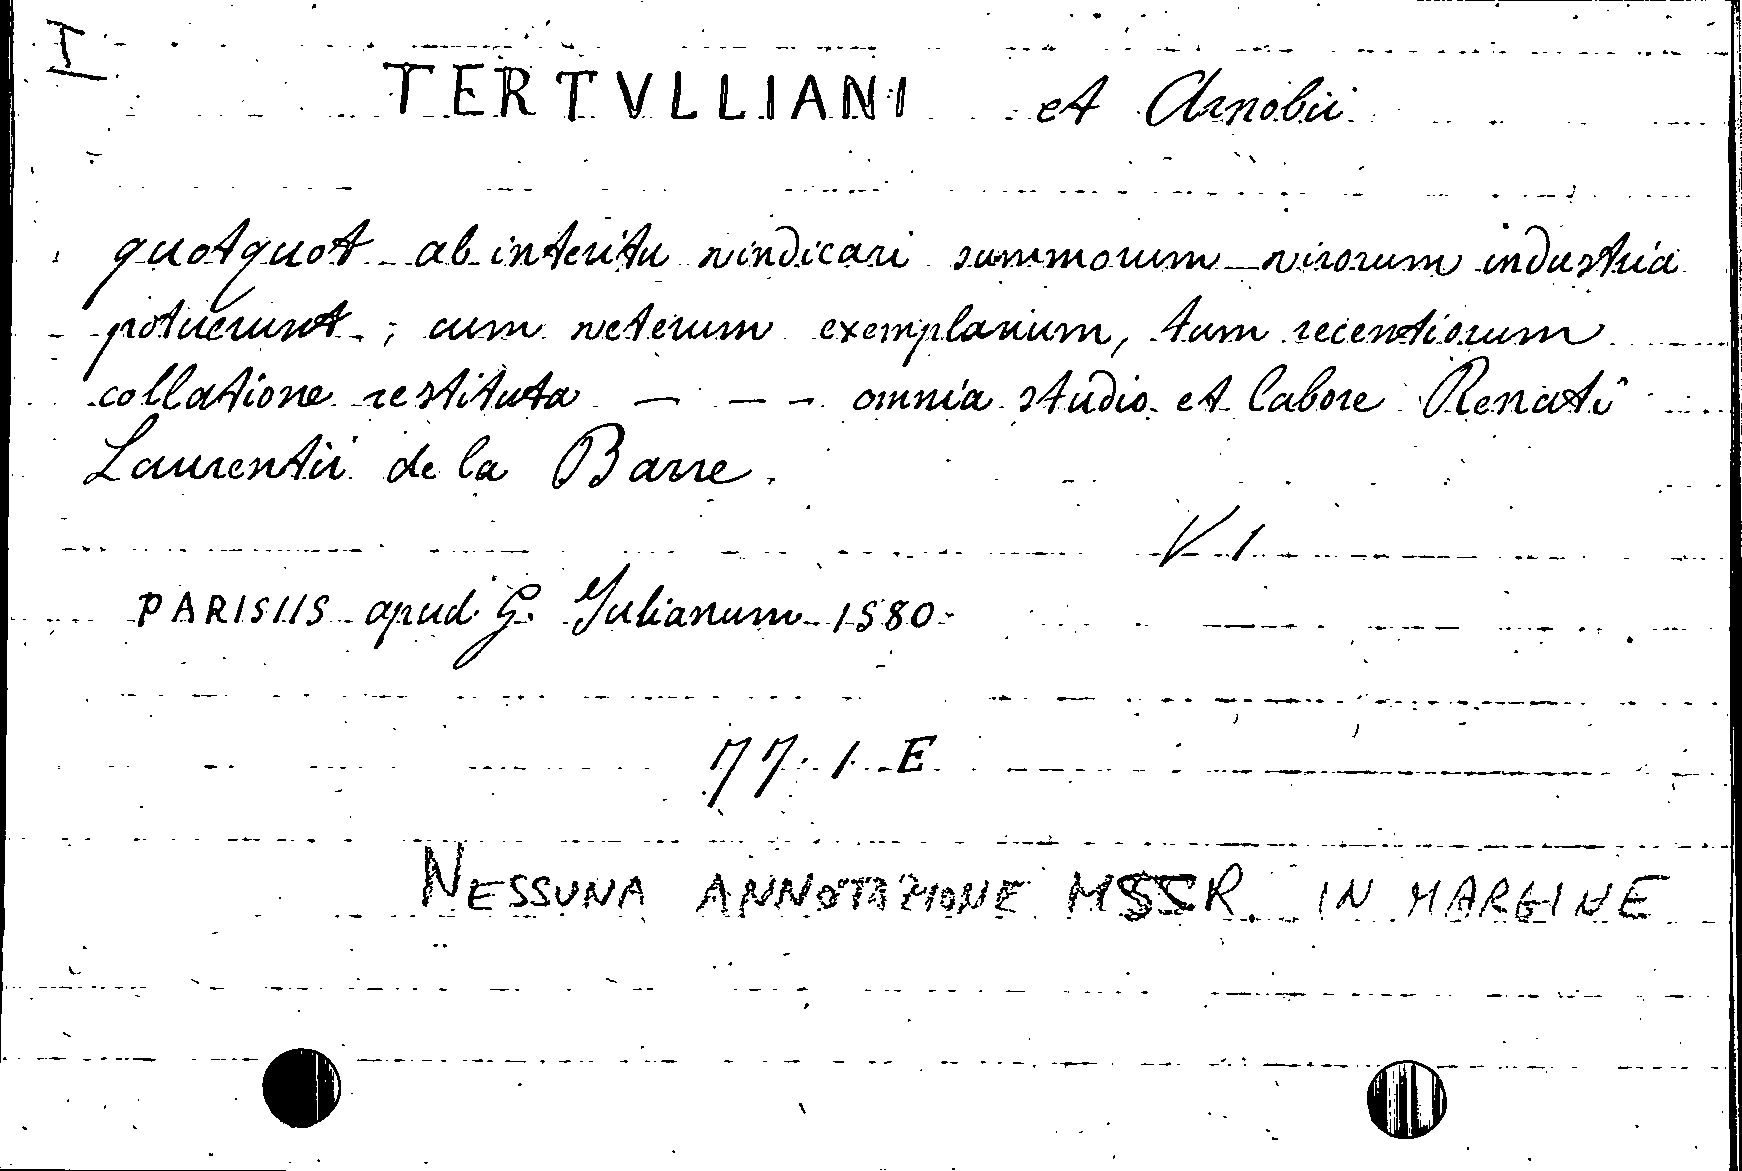 I
TERTVLLIANI et Arnobii
quotquot ab interitu vindicari summorum virorum industria
potuerunt ; cum veterum exemplarium, tum recentiorum
collatione restituta — - - omnia studio et labore Renati
Laurentii de la Barre.
V 1
PARISIIS apud G. Julianum 1580-
77. 1. E
NESSUNA ANNOTAZIONE MSSR. IN MARGINE